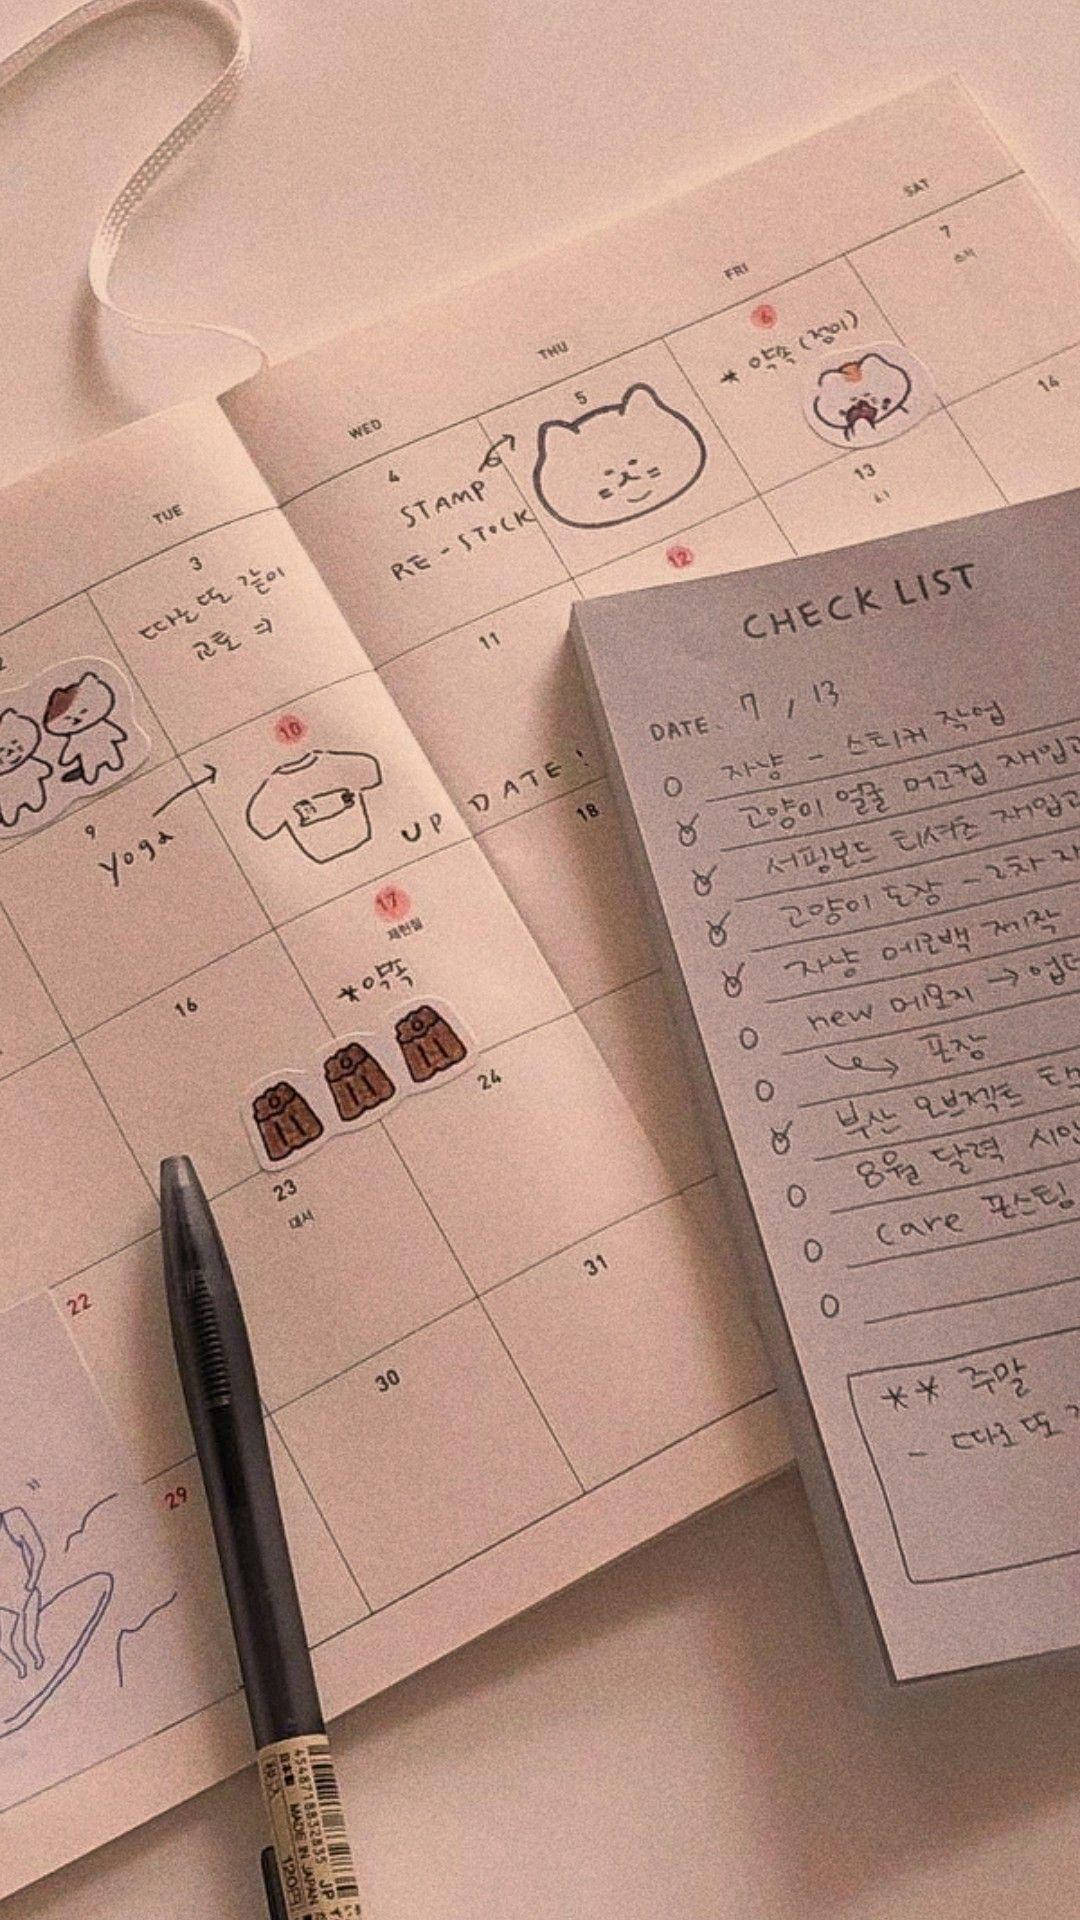 SAT
FRI
THU
WED
TUE
7
6
* 약속 (정이)
5
4
STAMP
RE-STOCK
3
따로 또 같이
교토
14
13
12
11
10
9
Yoga
UP DATE!
18
17
제헌절
*약속
16
24
23
대서
22
31
30
29
CHECK LIST
DATE. 7 / 13
자냥 - 스티커 작업
고양이 얼굴 머그컵 재입고
서핑보드 티셔츠 재입고
고양이 도장 - 2차
자냥 에코백 제작
new 메모지 →
포장
부산 오브젝트
8월 달력 시안
care 포스팅
** 주말
- 따로 또
4548718832835
日本製
MADE IN JAPAN
JP
120円